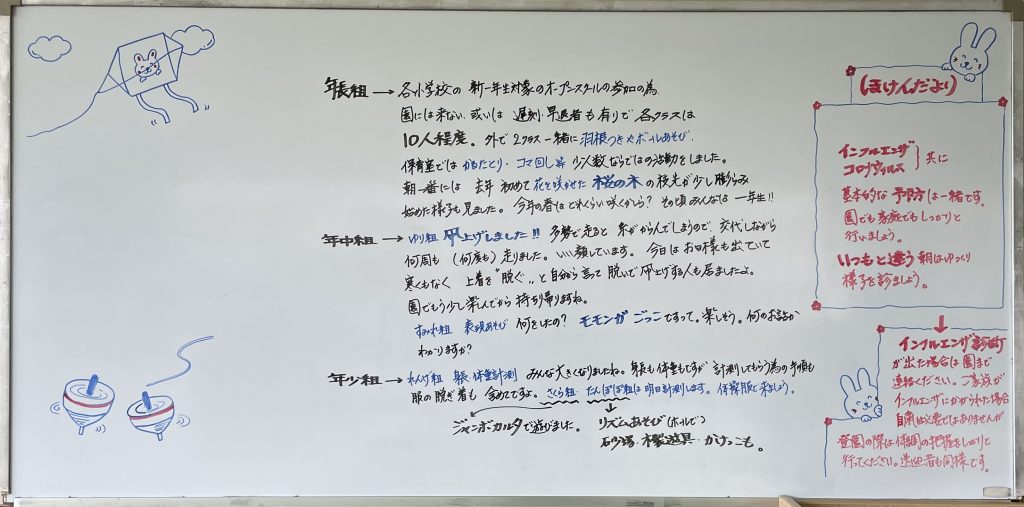 年長組 → 各小学校の 新一年生対象のオープンスクールの参加の為
園には来ない 或いは 遅刻・早退者も有りで 各クラスは
10人程度。外で2クラス一緒に羽根つきやボールあそび.
保育室では かるたとり・コマ回し等 少人数ならではの活動をしました。
朝一番には 去年 初めて花を咲かせた 桜の木 の枝先が少し膨らみ
始めた様子も見ました。今年の春はどれくらい咲くかしら? その頃みんなは 一年生!!
年中組 → ゆり組 凧上げしました!! 多勢で走ると 糸がからんでしまうので、交代しながら
何周も(何度も)走りました。いい顔しています。今日はお日様も出ていて
寒くもなく 上着を"脱ぐ"と自分から言って 脱いで凧上げする人も居ましたよ。
園でもう少し楽しんでから 持ち帰りますね。
すみれ組 表現あそび 何をしたの? モモンガ ごっこですって。楽しそう。何のお話か
わかりますか?
年少組 → れんげ組 身長・体重計測 みんな大きくなりましたね。身長も体重もですが 計測してもらう為の手順も
服の脱ぎ着も 含めてですよ。さくら組・たんぽぽ組は明日計測します。体操服で来ましょう。
ジャンボカルタで遊びました。
リズムあそび(ホールで)
石砂場・木製遊具・かけっこも。
ほけんだより
インフルエンザ
コロナウィルス } 共に
基本的な 予防は一緒です。
園でも家庭でもしっかりと
行いましょう。
いつもと違う 朝はゆっくり
様子を診ましょう。
インフルエンザ診断
が出た場合は園まで
連絡ください。ご家族が
インフルエンザにかかられた場合
自粛は必要ではありませんが
登園の際は体調の把握をしっかりと
行ってください。送迎者も同様です。